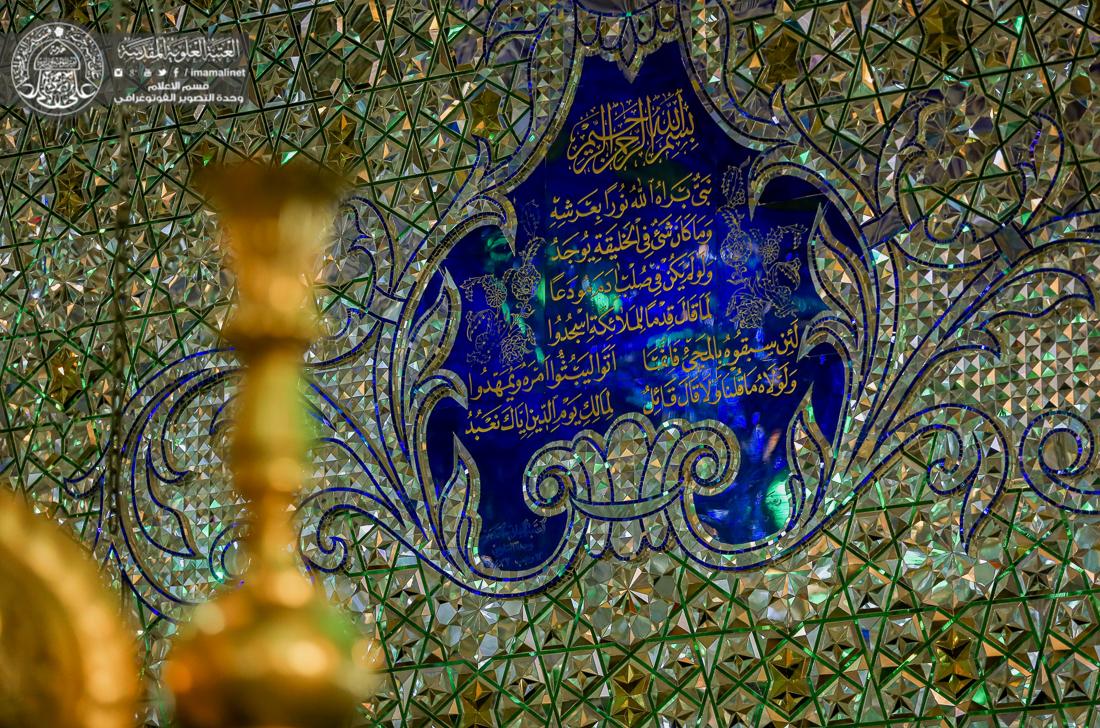 العتبة العلوية المقدسة
/ imamalinet
قسم الاعلام
وحدة التصوير الفوتوغرافي
بسم الله الرحمن الرحيم
نبي براه الله نورا بعرشه
وما كان شيء في الخليقة يوجد
ولو لم يكن في صلب ادم مودعا
لما قال قدما للملائكة اسجدوا
لئن سبقوه بالمجيء فانما
اتوا ليبثوا امره ويمهدوا
ولولاه ما قلنا ولا قال قائل
لمالك يوم الدين اياك نعبد